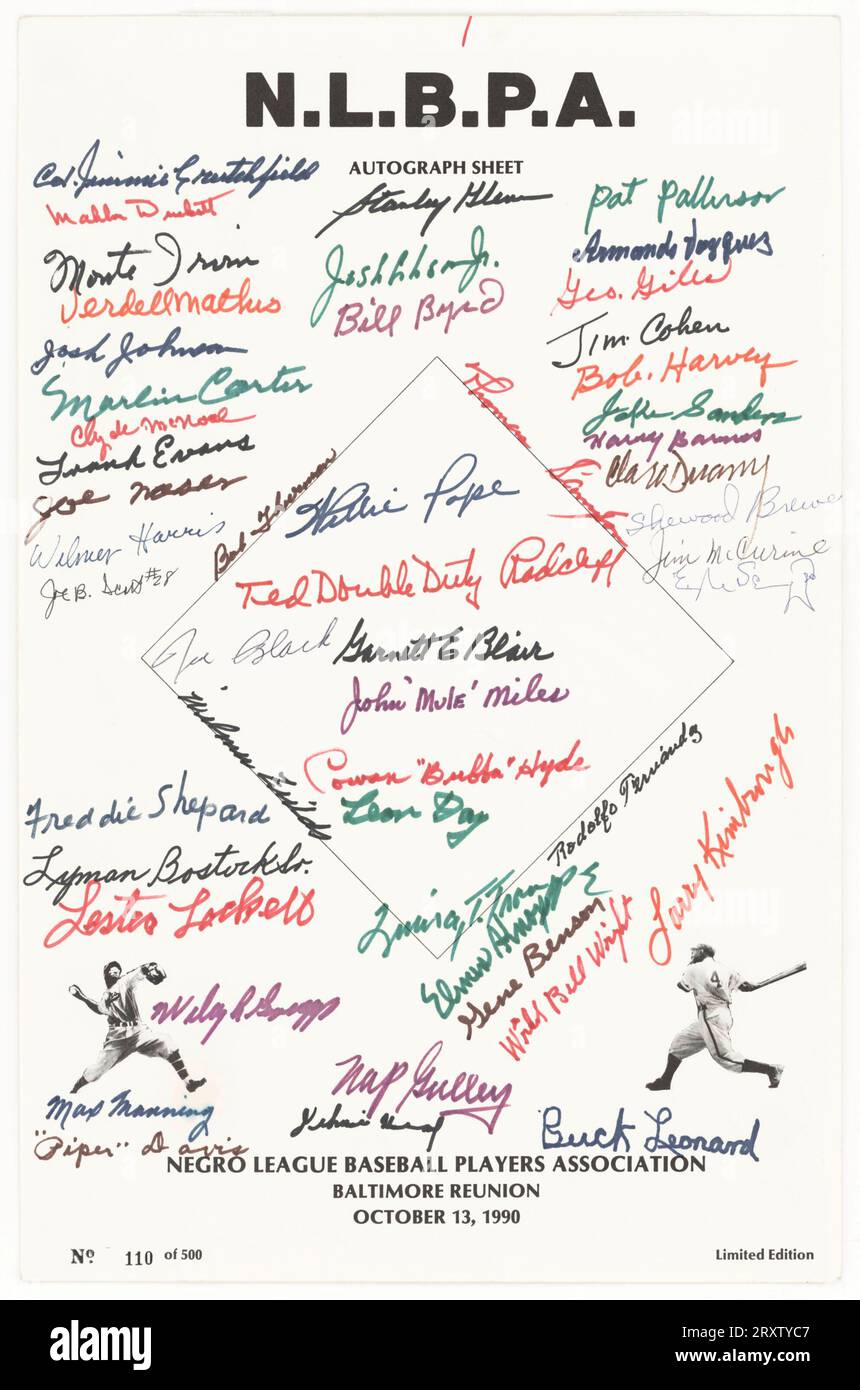 N.L.B.P.A.
AUTOGRAPH SHEET
Col. Jimmie Crutchfield
Stanley Glenn
Pat Patterson
Mahlon Duckett
Monte Irvin
Josh Gibson Jr.
Armando Vazquez
Verdell Mathis
Bill Byrd
Geo. Giles
Josh Johnson
Jim Cohen
Marlin Carter
Bob. Harvey
Clyde McNeal
Jake Sanders
Frank Evans
Harry Barnes
Joe
Clara
Bob Thurman
Willie Pope
Thomas
Wilmer Harris
Sherwood Brewer
Joe B. Scott #28
Jim McCurine
Ted Double Duty Radcliff
Joe Black
Garnett E Blair
John "Mule" Miles
Wilmer Fields
Cowan "Bubba" Hyde
Rodolfo Fernández
Larry Kimbrough
Freddie Shepard
Leon Day
Lyman Bostock Sr.
Lester Lockett
Quincy T. Trouppe
Elmer
Gene Benson
"Wild Bill" Wright
4
Wiley L Griggs
Nap Gulley
Max Manning
Buck Leonard
"Piper" Davis
NEGRO LEAGUE BASEBALL PLAYERS ASSOCIATION
BALTIMORE REUNION
OCTOBER 13, 1990
No. 110 of 500
Limited Edition
alamy
Image ID: 2RXTYC7
www.alamy.com